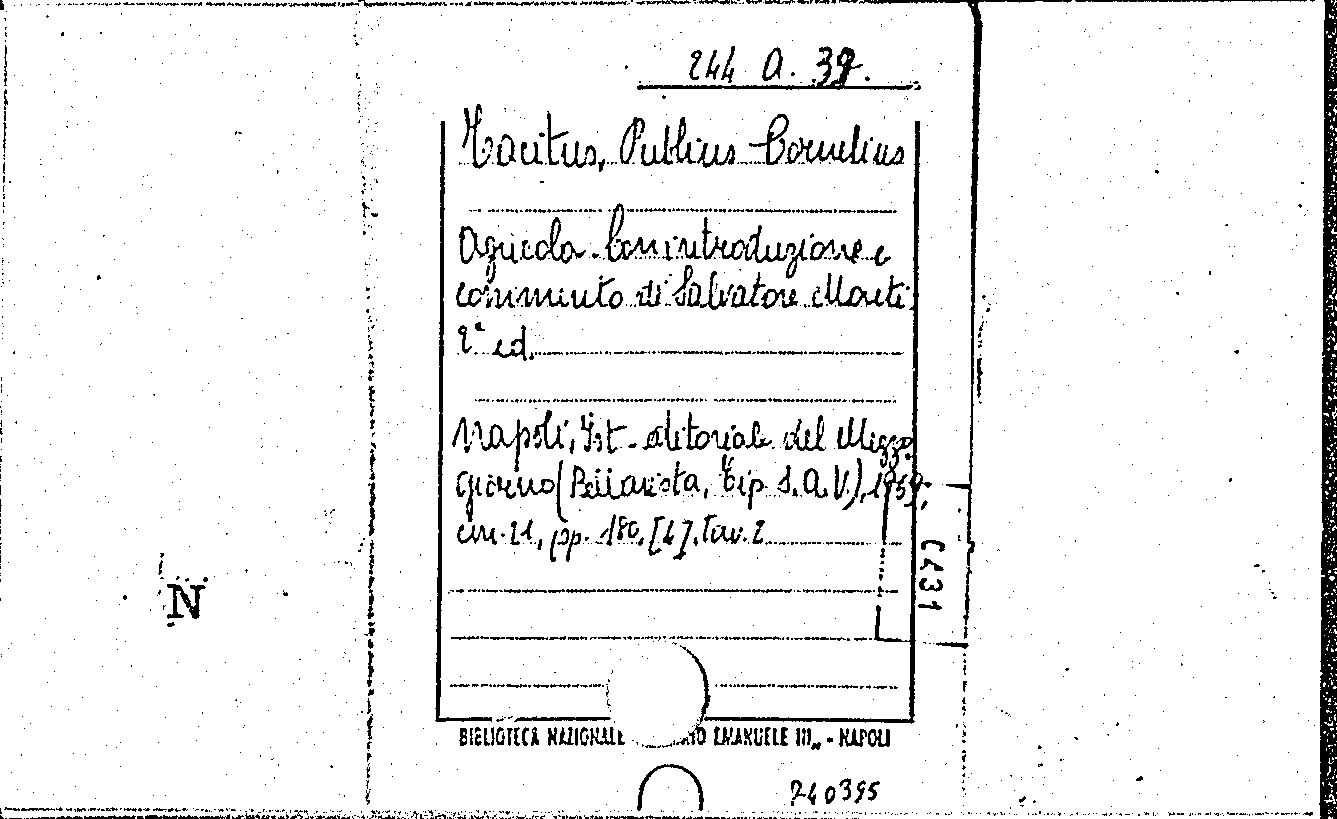 244 A. 39.
Tacitus, Publius Cornelius
Agricola. Con introduzione e
commento di Salvatore Moreti.
2ª ed.
Napoli, Ist. editoriale del Mezzo
giorno (Bellavista, Tip. S.A.V.), 1959,
cm. 21, pp. 180, [4], tav. 2
C431
N
BIBLIOTECA NAZIONALE EMANUELE III„ - NAPOLI
240395